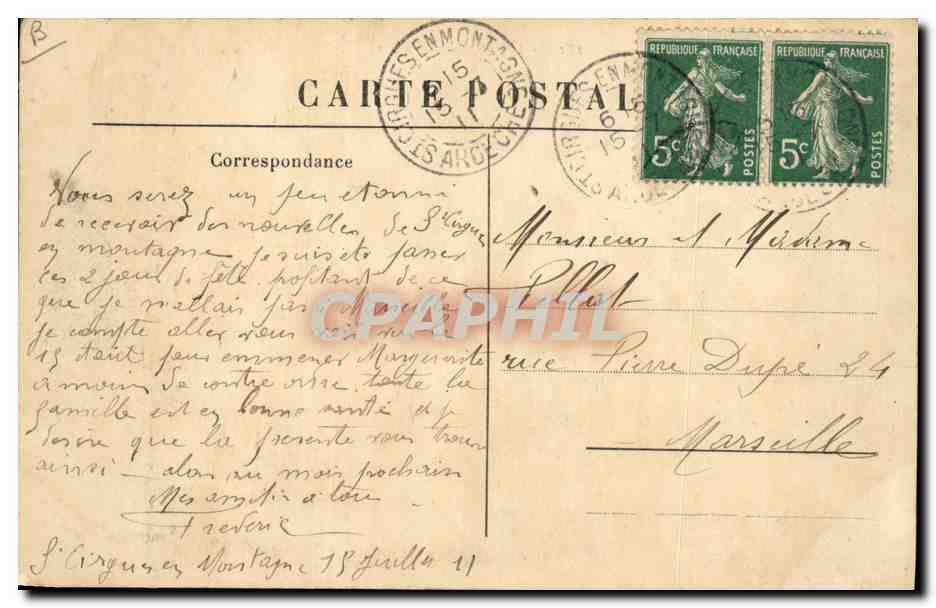 B
CARTE POSTALE
ST CIRGUES EN MONTAGNE
ARDECHE
15
15
11
REPUBLIQUE FRANÇAISE
5c
POSTES
REPUBLIQUE FRANÇAISE
5c
POSTES
Correspondance
Vous serez un peu etonné
de recevoir des nouvelles de St Cirgues
en montagne je suis passer
ces 2 jours de fête profitant de ce
que je n'allais pas Marseille
je compte aller vous voir
15 Aout pour emmener Marguerite
a moins de contre ordre toute la
famille est en bonne santé et je
desire que la presente vous trouve
ainsi – alors au mois prochain
Mes amitiés a tous
Frederic
St Cirgues en Montagne 15 Juillet 11
Monsieur et Madame
Pellat
rue Pierre Dupré 24
Marseille
CPAPHIL